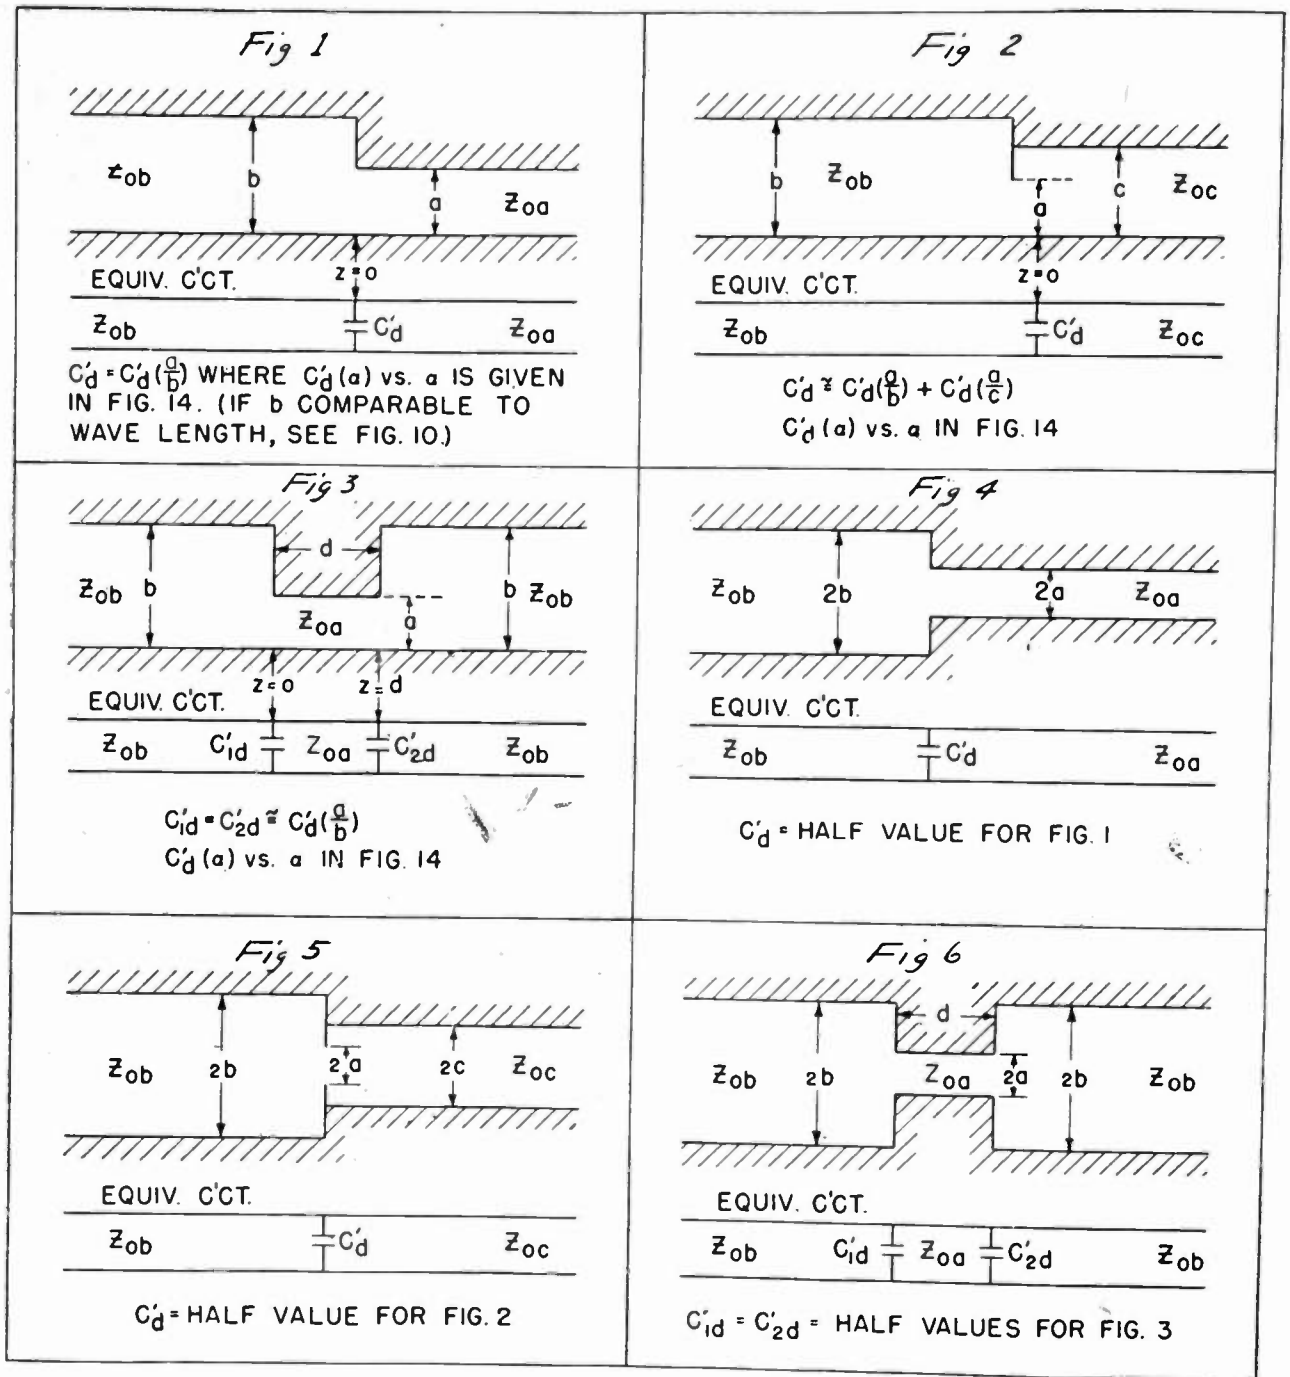 Fig 1
Zob
b
a
Zoa
z=o
EQUIV. C'CT.
Zob
C'd
Zoa
C'd = C'd(a/b) WHERE C'd(a) vs. a IS GIVEN
IN FIG. 14. (IF b COMPARABLE TO
WAVE LENGTH, SEE FIG. 10.)
Fig 2
b
Zob
a
c
Zoc
z=o
EQUIV. C'CT.
Zob
C'd
Zoc
C'd ≅ C'd(a/b) + C'd(a/c)
C'd(a) vs. a IN FIG. 14
Fig 3
d
Zob
b
Zoa
a
b
Zob
z=o
z=d
EQUIV. C'CT.
Zob
C'1d
Zoa
C'2d
Zob
C'1d = C'2d ≅ C'd(a/b)
C'd(a) vs. a IN FIG. 14
Fig 4
Zob
2b
2a
Zoa
EQUIV. C'CT.
Zob
C'd
Zoa
C'd = HALF VALUE FOR FIG. 1
Fig 5
Zob
2b
2a
2c
Zoc
EQUIV. C'CT.
Zob
C'd
Zoc
C'd = HALF VALUE FOR FIG. 2
Fig 6
d
Zob
2b
Zoa
2a
2b
Zob
EQUIV. C'CT.
Zob
C'1d
Zoa
C'2d
Zob
C'1d = C'2d = HALF VALUES FOR FIG. 3